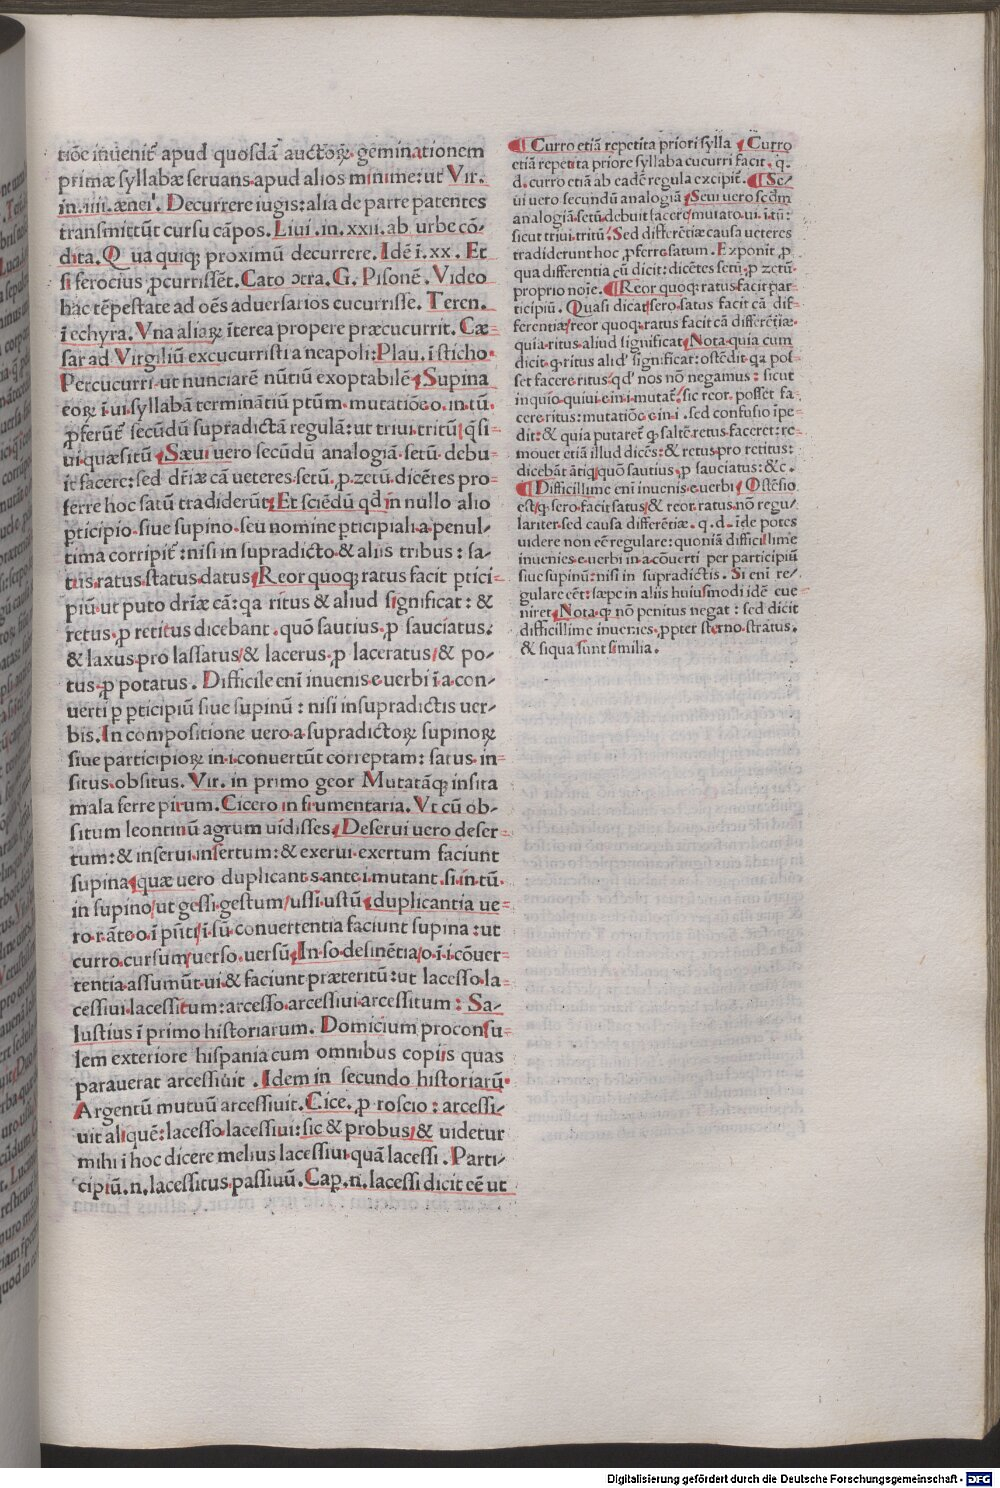 tiōe inuenit͛ apud quosdā auctoꝝ geminationem
primæ syllabæ seruans.apud alios minime:ut Vir.
in.iiii.ænei'. Decurrere iugis:alia de parte patentes
transmittūt cursu cāpos. Liui.in.xxii.ab urbe cō-
dita. Qua quiqꝫ proximū decurrere. Idē i.xx. Et
si ferocius ꝑcurrissēt. Cato ɔtra. G. Pisonē. Video
hac tēpestate ad oēs aduersarios cucurrisse. Teren.
ī echyra. Vna aliaꝝ īterea propere præcucurrit. Cæ-
sar ad Virgiliū excucurristi a neapoli:Plau. ī sticho.
Percucurri.ut nunciarē nūtiū exoptabilē Supina
eoꝝ ī.ui.syllabā terminātiū ptūm.mutatiōe.o.in.tū.
ꝓferūt͛ secūdū supradictā regulā:ut triui.tritū q̄si-
ui.quæsitū. Sæui uero secūdū analogiā.setū.debu-
it facere:sed dr̄iæ cā ueteres.setū.ꝓ.zetū.dicētes pro-
ferre hoc satū tradiderūt Et sciēdū qd̄ in nullo alio
ꝑticipio.siue supino.seu nomine ꝑticipiali.a penul-
tima corripit͛:nisi in supradicto.& aliis tribus : sa-
tus.ratus.status.datus Reor quoqꝫ ratus facit ꝑtici-
piū.ut puto dr̄iæ cā:qa ritus & aliud significat : &
retus.ꝓ retitus dicebant.quō sautius.ꝓ sauciatus:
& laxus.pro lassatus/& lacerus.ꝓ laceratus/& po-
tus.ꝓ potatus. Difficile enī inuenis.e.uerbi ī.a.con-
uerti ꝑ ꝑticipiū siue supinū : nisi insupradictis uer-
bis.In compositione uero.a supradictoꝝ supinoꝝ
siue participioꝝ in.i.conuertūt correptam: satus.in-
situs.obsitus. Vir. in primo geor Mutatāqꝫ insita
mala ferre pirum. Cicero in frumentaria. Vt cū ob-
situm leontinū agrum uidisses. Deserui uero deser-
tum:& inserui.insertum:& exerui.exertum faciunt
supina quæ uero duplicant.s.ante.i.mutant.si.in.tū.
in supino/ut gessi.gestum/ussi.ustū duplicantia ue-
ro.r.āte.o.ī p̄nti/ī.sū.conuertentia faciunt supina : ut
curro.cursum/uerso.uersū In.so.desinētia/o.ī.i.cōuer-
tentia.assumūt.ui.& faciunt præteritū:ut lacesso.la-
cessiui.lacessitum:arcesso.arcessiui.arcessitum : Sa-
lustius ī primo historiarum. Domicium proconsu-
lem exteriore hispania cum omnibus copiis quas
parauerat arcessiuit . Idem in secundo historiarū.
Argentū mutuū arcessiuit. Cice. ꝓ roscio : arcessi-
uit aliquē: lacesso.lacessiui: sic & probus/& uidetur
mihi ī hoc dicere melius lacessiui.quā lacessi. Parti-
cipiū.n.lacessitus.passiuū. Cap.n.lacessi dicit eē ut
Curro etiā repetita priori sylla Curro
etiā repetita priore syllaba cucurri facit. q.
d. curro etiā ab eadē regula excipit͛. Se-
ui uero secundū analogiā Seui uero scd̄m
analogiā.setū.debuit facere/mutato.ui.ī.tū:
sicut triui.tritū. Sed differētiæ causa ueteres
tradiderunt hoc , ꝓferre satum . Exponit ꝓ
qua differentia cū dicit: dicētes setū.ꝓ zetū.
proprio noīe. Reor quoqꝫ ratus facit par-
ticipiū. Quasi dicat sero.satus facit cā dif-
ferentiæ/reor quoqꝫ ratus facit cā differētiæ.
quia.ritus.aliud significat Nota quia cum
dicit q.ritus alid' significat:ostēdit qa pos-
set facere.ritus.qd' nos nō negamus : sicut
inquio.quiui.e in.i.mutat͛.sic reor. posset fa-
cere.ritus:mutatiōe.e in.i .sed confusio īpe-
dit:& quia putaret͛ qꝫ saltē.retus.faceret: re-
mouet etiā illud dicēs:& retus pro retitus:
dicebāt ātiq/quō sautius , ꝓ sauciatus : & c .
Difficillime enī inuenis.e.uerbi Ostēsio
est/qꝫ sero.facit satus/& reor.ratus.nō regu-
lariter.sed causa differētiæ. q. d. īde potes
uidere non eē regulare: quoniā difficillime
inuenies.e.uerbi in.a.cōuerti per participiū
siue supinū:nisi in supradictis. Si enī re-
gulare eēt: sæpe in aliis huiusmodi idē eue-
niret. Nota.qꝫ nō penitus negat : sed dicit
difficillime inuenies.ꝓpter sterno.stratus.
& siqua sunt similia .
Digitalisierung gefördert durch die Deutsche Forschungsgemeinschaft - DFG